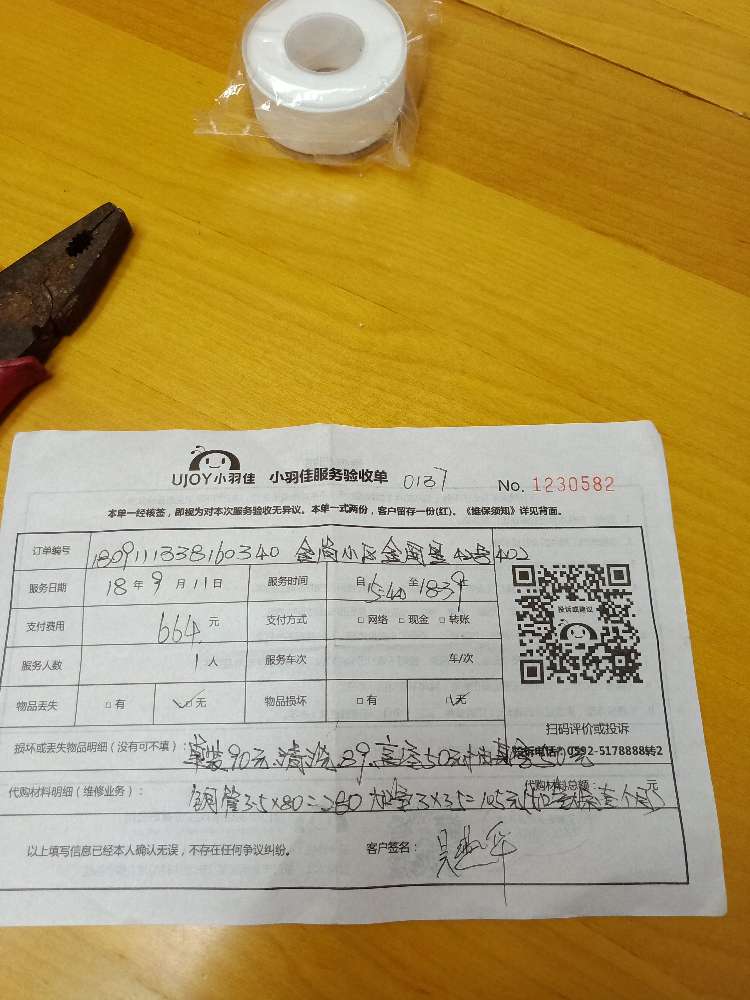 UJOY小羽佳 小羽佳服务验收单 0137 No. 1230582
本单一经核签，即视为对本次服务验收无异议。本单一式两份，客户留存一份(红)。《维保须知》详见背面。
订单编号 1809111338160340 金尚小区 402
服务日期 18年9月11日 服务时间 自15:40至18:39
支付费用 664元 支付方式 □网络 □现金 □转账
投诉或建议
服务人数 1人 服务车次 车/次
物品丢失 □有 □无 物品损坏 □有 □无
扫码评价或投诉
投诉电话：0592-5178888转2
损坏或丢失物品明细（没有可不填）： 90元、清洗89、高空50元
代购材料明细（维修业务）： 铜管3.5×80=280 3×35=105元
代购材料总额： 元
以上填写信息已经本人确认无误，不存在任何争议纠纷。 客户签名：